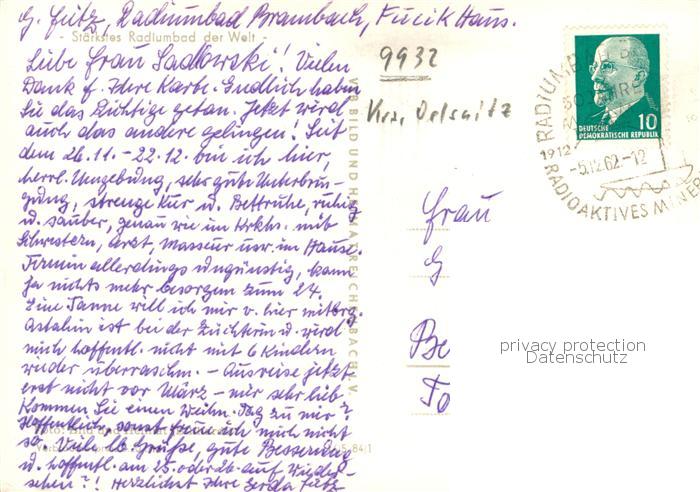 G. Fritz, Radiumbad Brambach, Fucik Haus.
- Stärkstes Radiumbad der Welt -
Liebe Frau Sadowski! Vielen
Dank f. Ihre Karte. Endlich haben
Sie das Richtige getan. Jetzt wird
auch das andere gelingen! Seit
dem 26.11. - 22.12. bin ich hier,
herrl. Umgebung, sehr gute Unterbrin-
gung, strenge Kur u. Bettruhe, ruhig
u. sauber, genau wie im Krkhs. mit
Schwestern, Arzt, Masseur usw. im Hause.
Termin allerdings ungünstig, kann
ja nichts mehr besorgen zum 24.
Eine Tanne will ich mir v. hier mitbrg.
ist bei der Züchterin u. wird
mich hoffentl. nicht mit 6 Kindern
wieder überraschen. - Ausreise jetzt
erst nicht vor März - mir sehr lieb.
Kommen Sie einen Weihn. Tag zu mir?
Hoffentlich, sonst freue ich mich nicht
so. Viele lb. Grüße, gute Besserung
u. hoffentl. am 25. oder 26. auf Wieder-
sehen?! Herzlichst Ihre Gerda Fritz
VEB BILD UND HEIMAT REICHENBACH I. V.
9932
Krs. Oelsnitz
DEUTSCHE
DEMOKRATISCHE REPUBLIK
10
RADIUMBAD
50 JAHRE
1912
-5.12.62.-12
RADIOAKTIVES MINER
Frau
G
Be
To
privacy protection
Datenschutz